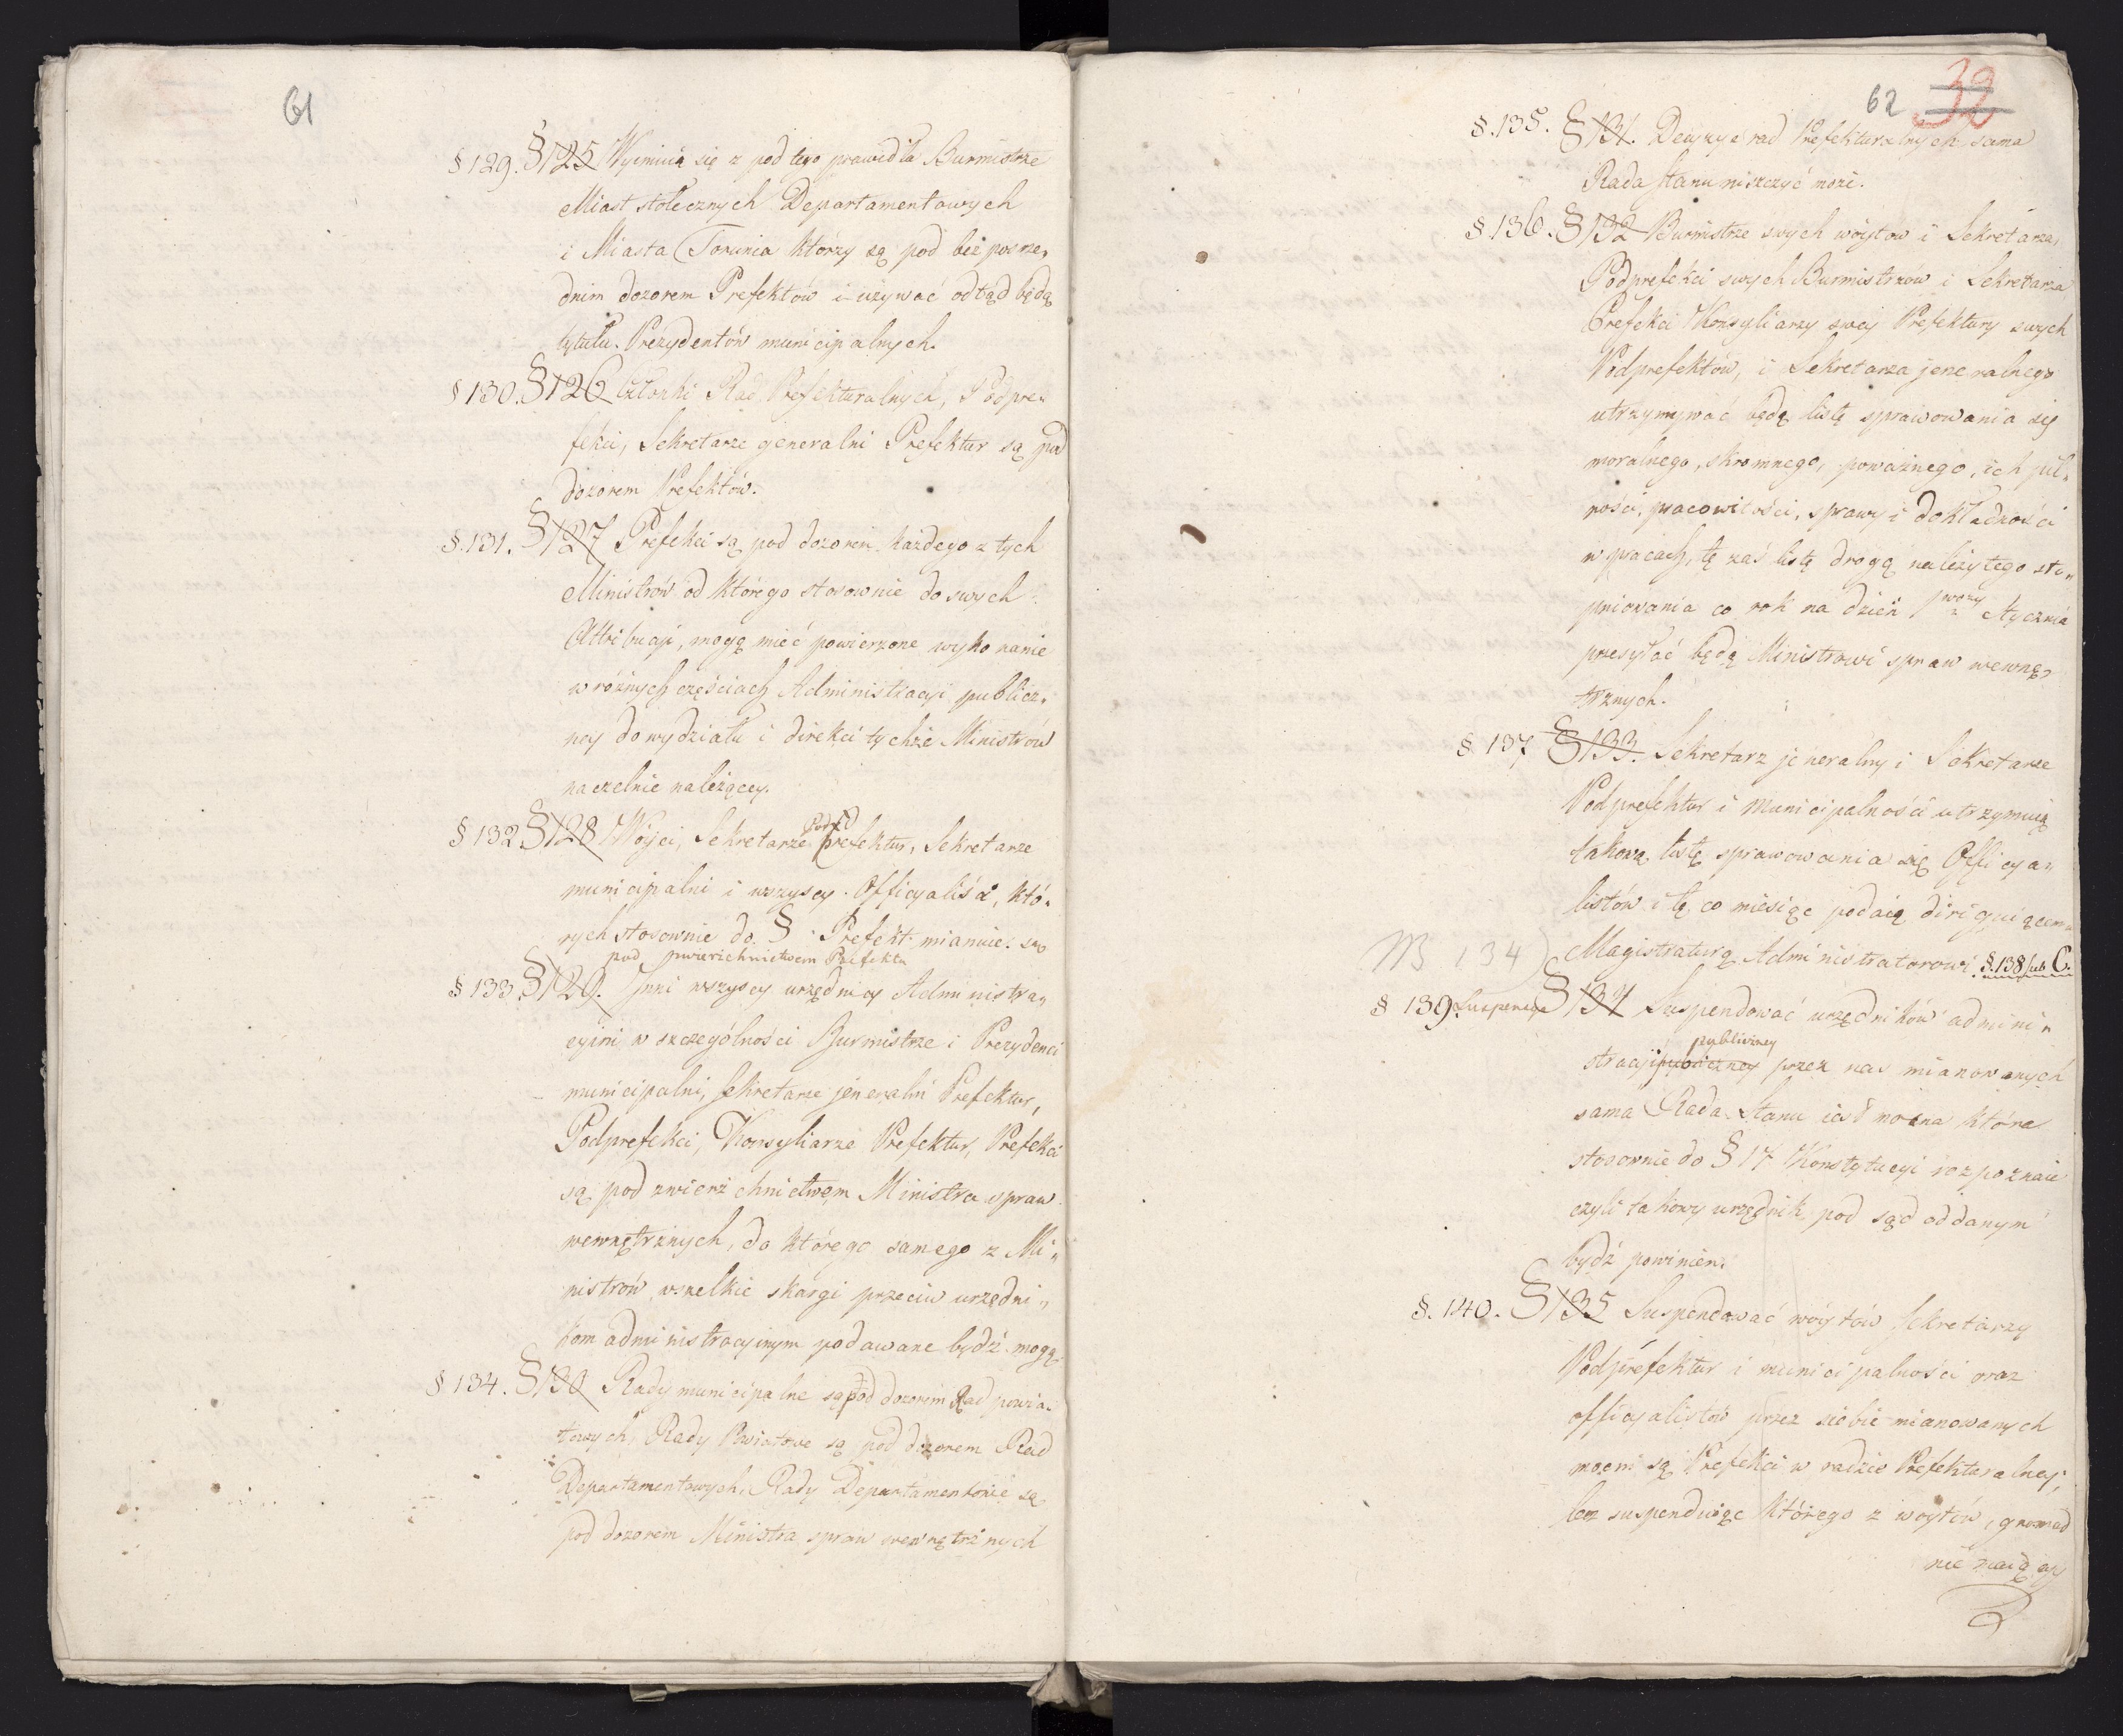 61
§ 129. § 125 Wyimuią się z pod tego prawidła Burmistrze
Miast stołecznych Departamentowych
i Miasta Torunia którzy są pod bezposrze„
dnim dozorem Prefektów i używać odtąd będą
tytułu Prezydentów municipalnych.
§ 130. § 126 Członki Rad Prefekturalnych, Podpre„
fekci, Sekretarze generalni Prefektur są pod
dozorem Prefektów.
§. 131. § 127 Prefekci są pod dozorem każdego z tych
Ministrów od którego stosownie do swych
Attribucyi, mogą mieć powierzone wykonanie
w różnych częściach Administracyi publicz„
ney do wydziału i direkci tychże Ministrów
naczelnie należącey.
Pod
§ 132 § 128 Wóyci, Sekretarze prefektur, Sekretarze
municipalni i wszyscy Officyaliści, któ„
rych stosownie do § Prefekt mianuie są
pod zwierzchnictwem Prefekta
§ 133 § 129. Inni wszyscy urzędnicy Administra„
cyini w szczególności Burmistrze i Prezydenci
municipalni, sekretarze jeneralni Prefektur,
Podprefekci, Konsyliarze Prefektur, Prefekci
są pod zwierzchnictwem Ministra spraw
wewnętrznych, do którego samego z Mi„
nistrów wszelkie skargi przeciw urzędni„
kom administracyinym podawane bydź mogą
§ 134. § 130 Rady municipalne są pod dozorem Rad powia„
towych, Rady Powiatowe są pod dozorem Rad
Departamentowych, Rady Departamentowe są
pod dozorem Ministra spraw wewnętrznych
62 32
§. 135. § 131. Decyzye rad Prefekturalnych sama
Rada Stanu niszczyć może.
§ 136. § 132 Burmistrze swych wóytow i Sekretarza,
Podprefekci swych Burmistrzów i Sekretarza
Prefekci Konsyliarzy swey Prefektury swych
Podprefektów, i Sekretarza jeneralnego
utrzymywać będą listę sprawowania się
moralnego, skromnego, poważnego, ich pil„
ności, pracowitości, sprawy i dokładności
w pracach, tę zaś listę drogą należytego sto„
pniowania co rok na dzień 1wszy Stycznia
przesyłać będą Ministrowi spraw wewnę„
trznych.
§ 137 § 133. Sekretarz jeneralny i Sekretarze
Podprefektur i municipalności utrzymuią
takową listę sprawowania się Officya„
listów i tę co miesiąc podaią diriguiącemu
Magistraturą Administratorowi. §. 138 sub C.
NB 134)
§ 139. § 134 Suspendować urzędników admini„
publiczney
stracyi publiczney przez nas mianowanych
sama Rada Stanu iest mocna która
stosownie do § 17 Konstytucyi rozpoznaie
czyli takowy urzędnik pod sąd oddanym
bydź powinien.
§. 140. § 135 Suspendować wóytów Sekretarzy
Podprefektur i municipalności oraz
officyalistów przez siebie mianowanych
mocni są Prefekci w radzie Prefekturalney,
lecz suspenduiąc którego z woytów, gromad